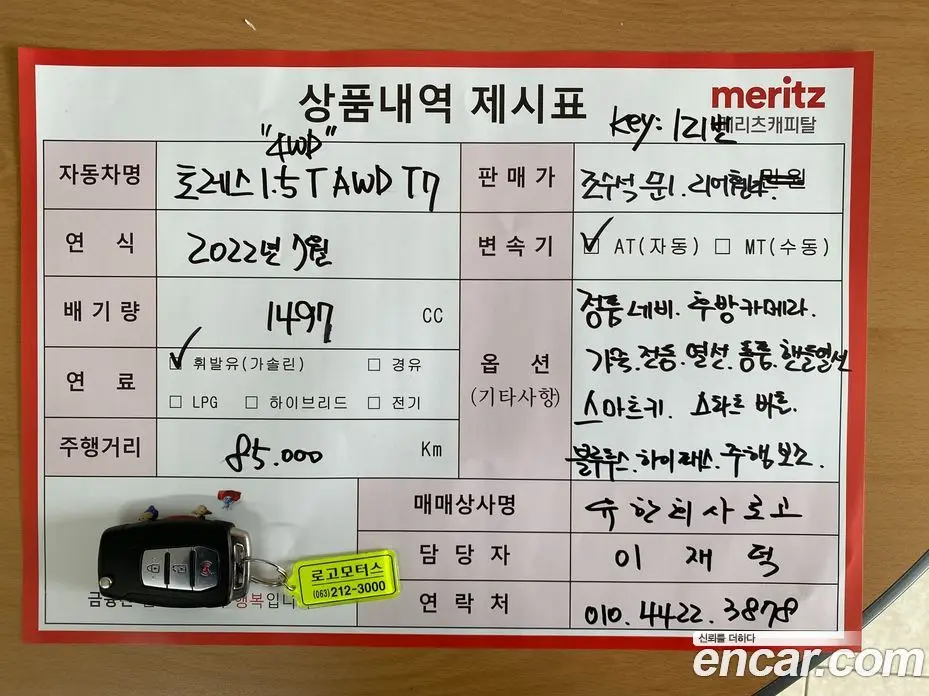 상품내역 제시표
meritz
메리츠캐피탈
key: 121번
"4WD"
자동차명 토레스 1.5T AWD T7
판매가 조수석 문1. 리어휀다. 만원
연식 2022년 7월
변속기 ☑ AT(자동) ☐ MT(수동)
배기량 1497 CC
연료 ☑ 휘발유(가솔린) ☐ 경유
☐ LPG ☐ 하이브리드 ☐ 전기
주행거리 85.000 Km
옵션
(기타사항)
정품네비. 후방카메라.
가죽.전동.열선.통풍.핸들열선
스마트키. 스타트 버튼.
블루투스.하이패스.주행보조.
매매상사명 유한회사로고
담당자 이재덕
연락처 010.4422.3878
로고모터스
(063)212-3000
행복입니
신뢰를 더하다
encar.com